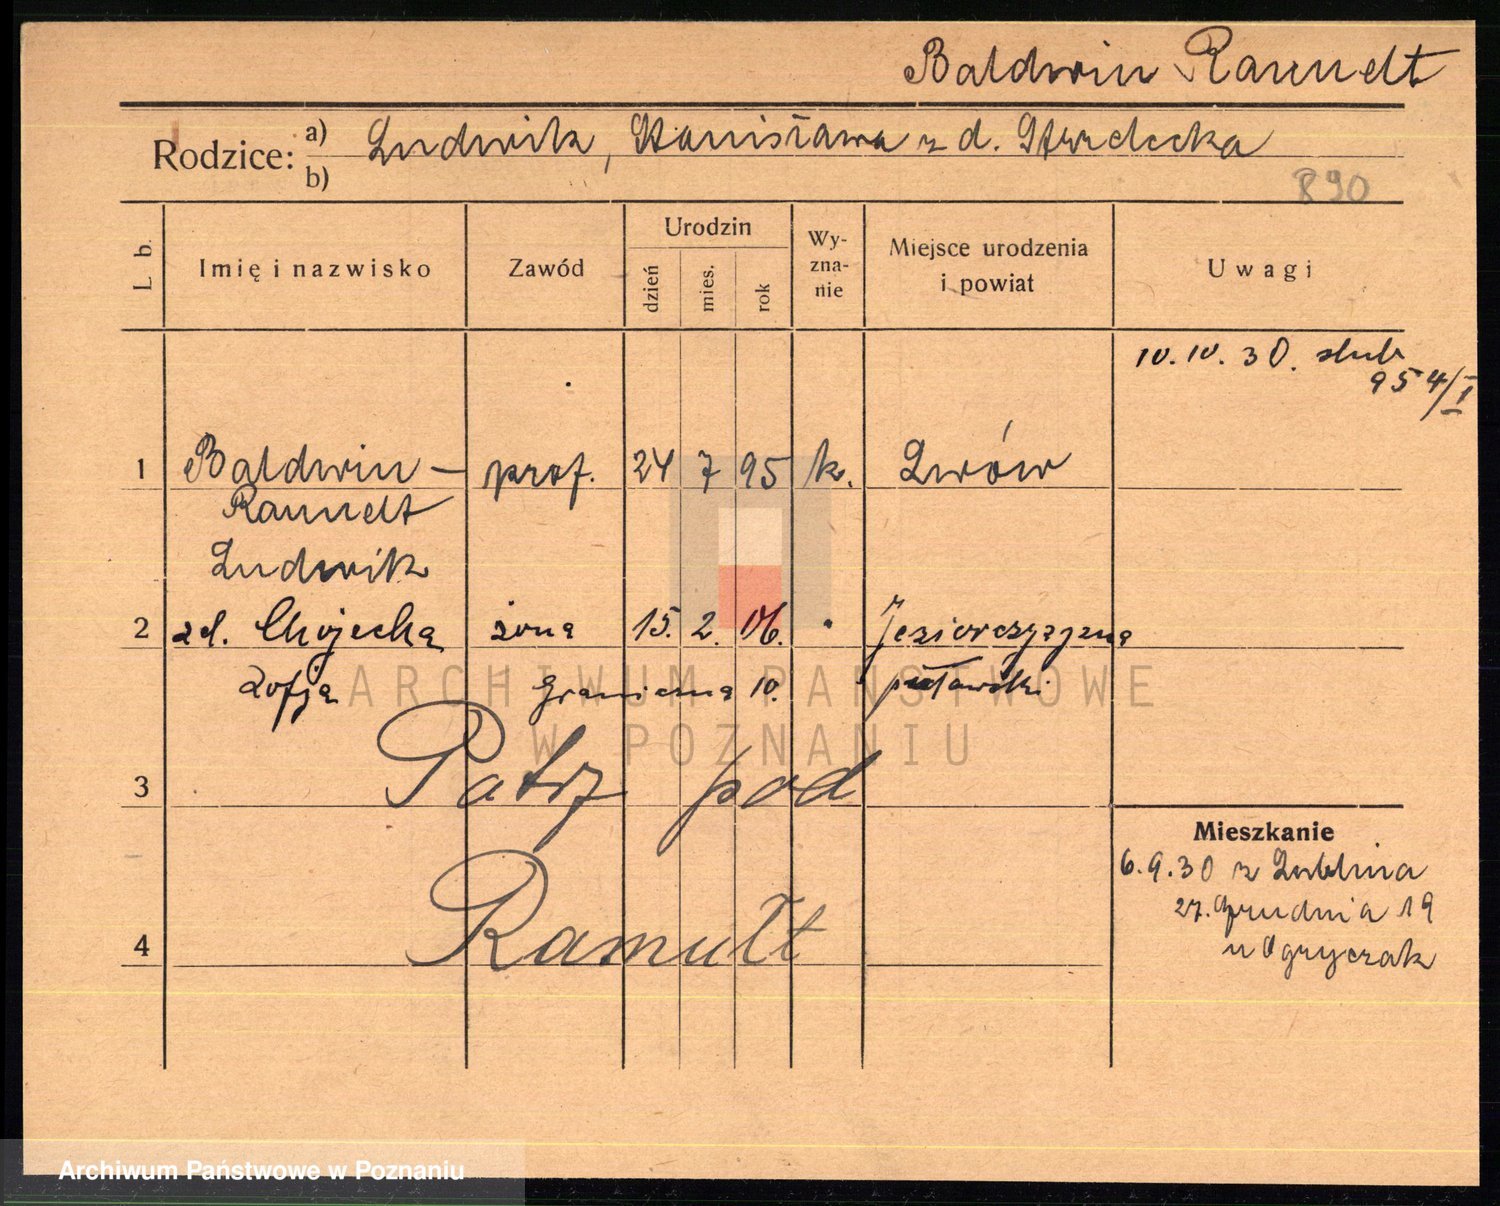 Baldwin Ramuelt
Rodzice: a) Ludwik, Stanisława z d. Strzelecka
b)
890
L. b.
Imię i nazwisko
Zawód
Urodzin
dzień
mies.
rok
Wy-
zna-
nie
Miejsce urodzenia
i powiat
Uwagi
10.10.30. ślub
954/I
1 Baldwin - prof. 24 7 95 k. Lwów
Ramuelt
Ludwik
2 zd. Chojecka żona 15. 2. 06. "
Zofja Graniczna 10. puławski
ARCHIWUM PAŃSTWOWE
W POZNANIU
3 Patrz pod
4 Ramułt
Mieszkanie
6.9.30 z Lublina
27. Grudnia 19
u Ogryczak
Archiwum Państwowe w Poznaniu